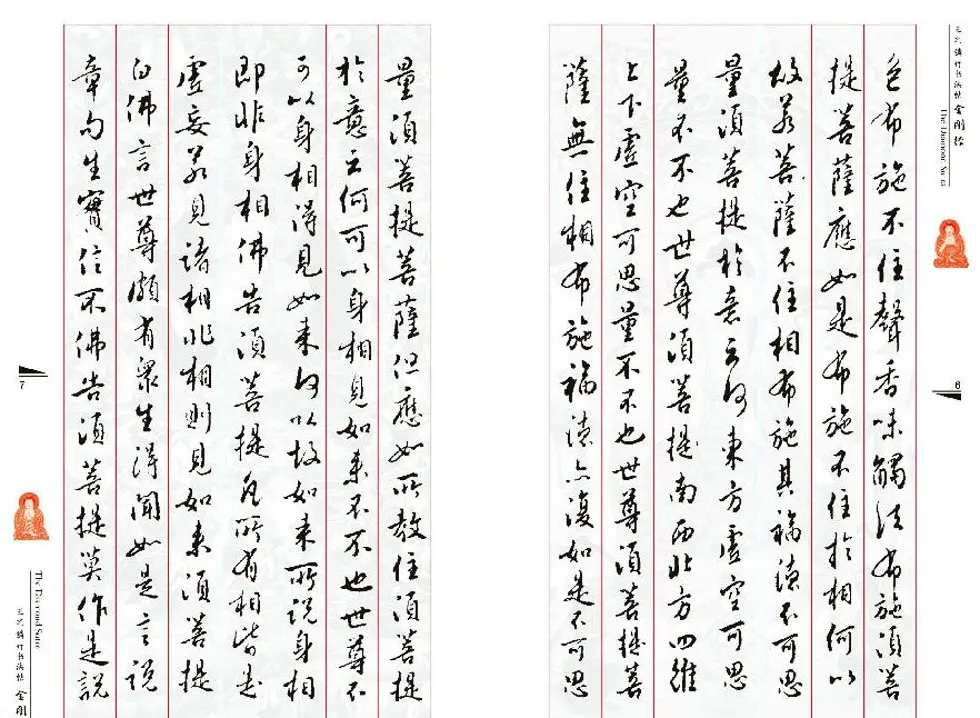 书法帖 金刚经
The Diamond Sutra
6
色布施不住聲香味觸法布施須菩
提菩薩應如是布施不住於相何以
故若菩薩不住相布施其福德不可思
量須菩提於意云何東方虛空可思
量不不也世尊須菩提南西北方四維
上下虛空可思量不不也世尊須菩提菩
薩無住相布施福德亦復如是不可思
量須菩提菩薩但應如所教住須菩提
於意云何可以身相見如來不不也世尊不
可以身相得見如來何以故如來所說身相
即非身相佛告須菩提凡所有相皆是
虛妄若見諸相非相則見如來須菩提
白佛言世尊頗有眾生得聞如是言說
章句生實信不佛告須菩提莫作是説
7
The Diamond Sutra
书法帖 金刚